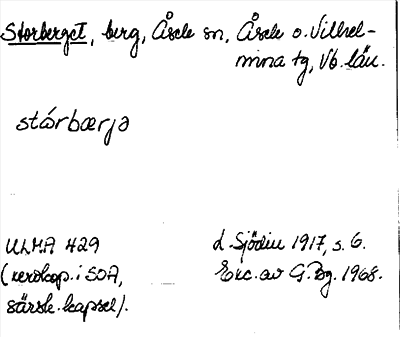 Storberget, berg, Åsele sn, Åsele o. Vilhel-
mina tg, Vb. län.
stórbærjə
ULMA 429
(xerokop. i SOA,
särsk. kapsel).
L. Sjödin 1917, s. 6.
Exc. av G. Bg. 1968.